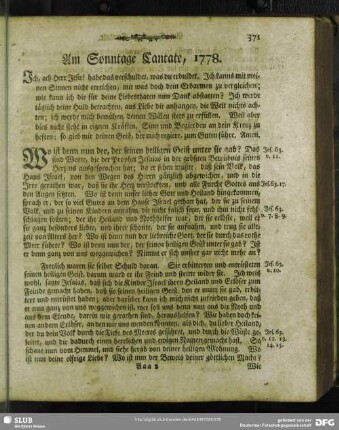 371
Am Sonntage Cantate, 1778.
Ich, ach Herr Jesu! habe das verschuldet, was du erduldet. Ich kanns mit meinen
Sinnen nicht erreichen, mit was doch dein Erbarmen zu vergleichen;
wie kann ich dir für deine Liebesthaten mein Dank abstatten? Ich werde
täglich deine Huld betrachten, aus Liebe dir anhangen, die Welt nichts achten;
ich werde mich bemühen, deinen Willen stets zu erfüllen. Weil aber
dies nicht steht in eignen Kräften, Sinn und Begierden an dein Kreuz zu
heften: so gieb mir deinen Geist, der mich regiere, zum Guten führe. Amen.
Wo ist denn nun der, der seinen heiligen Geist unter sie gab? Das
sind Worte, die der Prophet Jesaias in der größten Betrübnis seines
Herzens ausgesprochen hat; da er sehen mußte, daß sein Volk, das
Haus Israel, von den Wegen des Herrn gänzlich abgewichen, und in die
Irre gerathen war, daß sie ihr Herz verstockten, und alle Furcht Gottes aus
den Augen setzten. Wo ist denn unser lieber Gott und Heiland hingekommen,
sprach er, der so viel Gutes an dem Hause Israel gethan hat, der sie zu seinem
Volk, und zu seinen Kindern annahm, die nicht falsch seyn, und ihm nicht fehlschlagen
sollten; der ihr Heiland und Nothhelfer war, der sie erlösete, weil er
sie ganz besonders liebte, und ihrer schonte, der sie aufnahm, und trug sie allezeit
von Alters her? Wo ist denn nun der liebreiche Gott, der sie durch das rothe
Meer führte? Wo ist denn nun der, der seinen heiligen Geist unter sie gab? Ist
er denn ganz von uns weggewichen? Nimmt er sich unser gar nicht mehr an?
Jes. 63.
v. 11.
Jes. 63. 17.
Jes. 63.
v. 7. 8. 9.
Freilich waren sie selber Schuld daran. Sie erbitterten und entrüsteten
seinen heiligen Geist, darum ward er ihr Feind und stritte wider sie. Ich weiß
wohl, sagte Jesaias, daß sich die Kinder Israel ihren Heiland und Erlöser zum
Feinde gemacht haben, daß sie seinen heiligen Geist, den er unter sie gab, erbittert
und entrüstet haben; aber darüber kann ich mich nicht zufrieden geben, daß
er nun ganz von uns weggewichen ist, wer soll uns denn nun aus der Noth und
aus dem Elende, darein wir gerathen sind, heraushelfen? Wir haben doch keinen
andern Erlöser, haben nur uns niederkommen, als dich, du lieber Heiland,
der du dein Volk durch die Tiefe des Meeres geführet, und durch die Wüste geleitet,
und dir dadurch einen herrlichen und ewigen Namen gemacht hast. So
schaue nun vom Himmel, und siehe herab von deiner heiligen Wohnung. Wo
ist nun deine eifrige Liebe? Wo ist nun der Beweis deiner göttlichen Macht?
Jes. 63.
v. 10.
Jes. 63.
v. 12. 13.
14. 15.
Aaa 2
Wie
SLUB
Wir führen Wissen.
gefördert von der
Deutschen Forschungsgemeinschaft
DFG